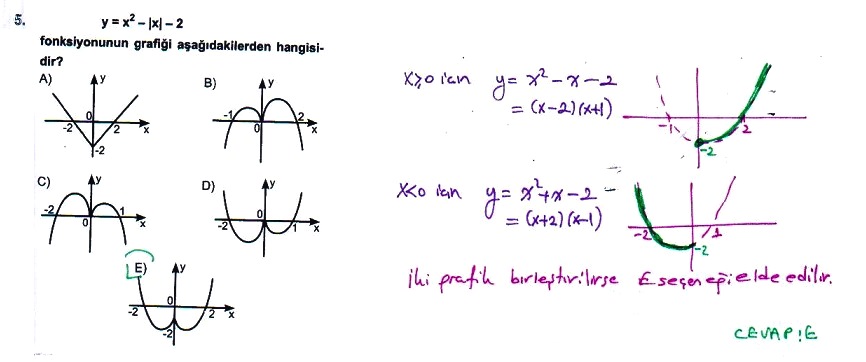 5.
y = x² – |x| – 2
fonksiyonunun grafiği aşağıdakilerden hangisi-
dir?
A) y 0 -2 2 x -2
B) y -1 0 2 x
C) y -2 0 1 x
D) y -2 0 1 x
E) y 0 -2 2 x -2
x≥0 için y = x² – x – 2
= (x-2)(x+1)
-1 2 -2
x<0 için y = x²+x-2
= (x+2)(x-1)
-2 1 -2
İki grafik birleştirilirse E seçeneği elde edilir.
CEVAP:E